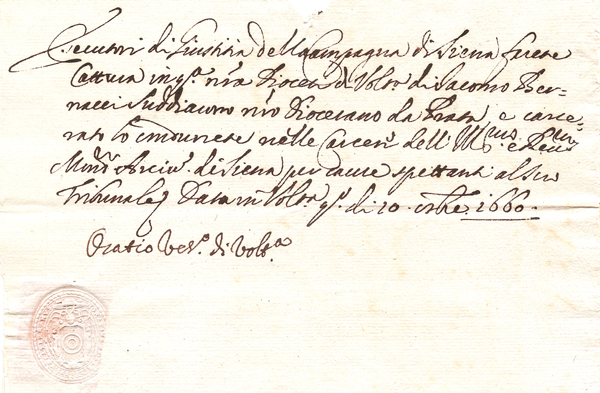 Esecutori di Giustitia della Campagna di Siena farete
Cattura in q.ª n̄ra Diocesi di Volt.ª di Giacomo Ber-
nacci Suddiacono n̄ro Diocesano da Prata, e carce-
rato lo condurrete nelle Carceri dell' Ill.mo e Rev.mo
Mons.r Arciv.º di Siena per cause spettanti al suo
Tribunale Data in Volt.ª q.º dì 20 1660.
Oratio Vesc.º di Volt.ª